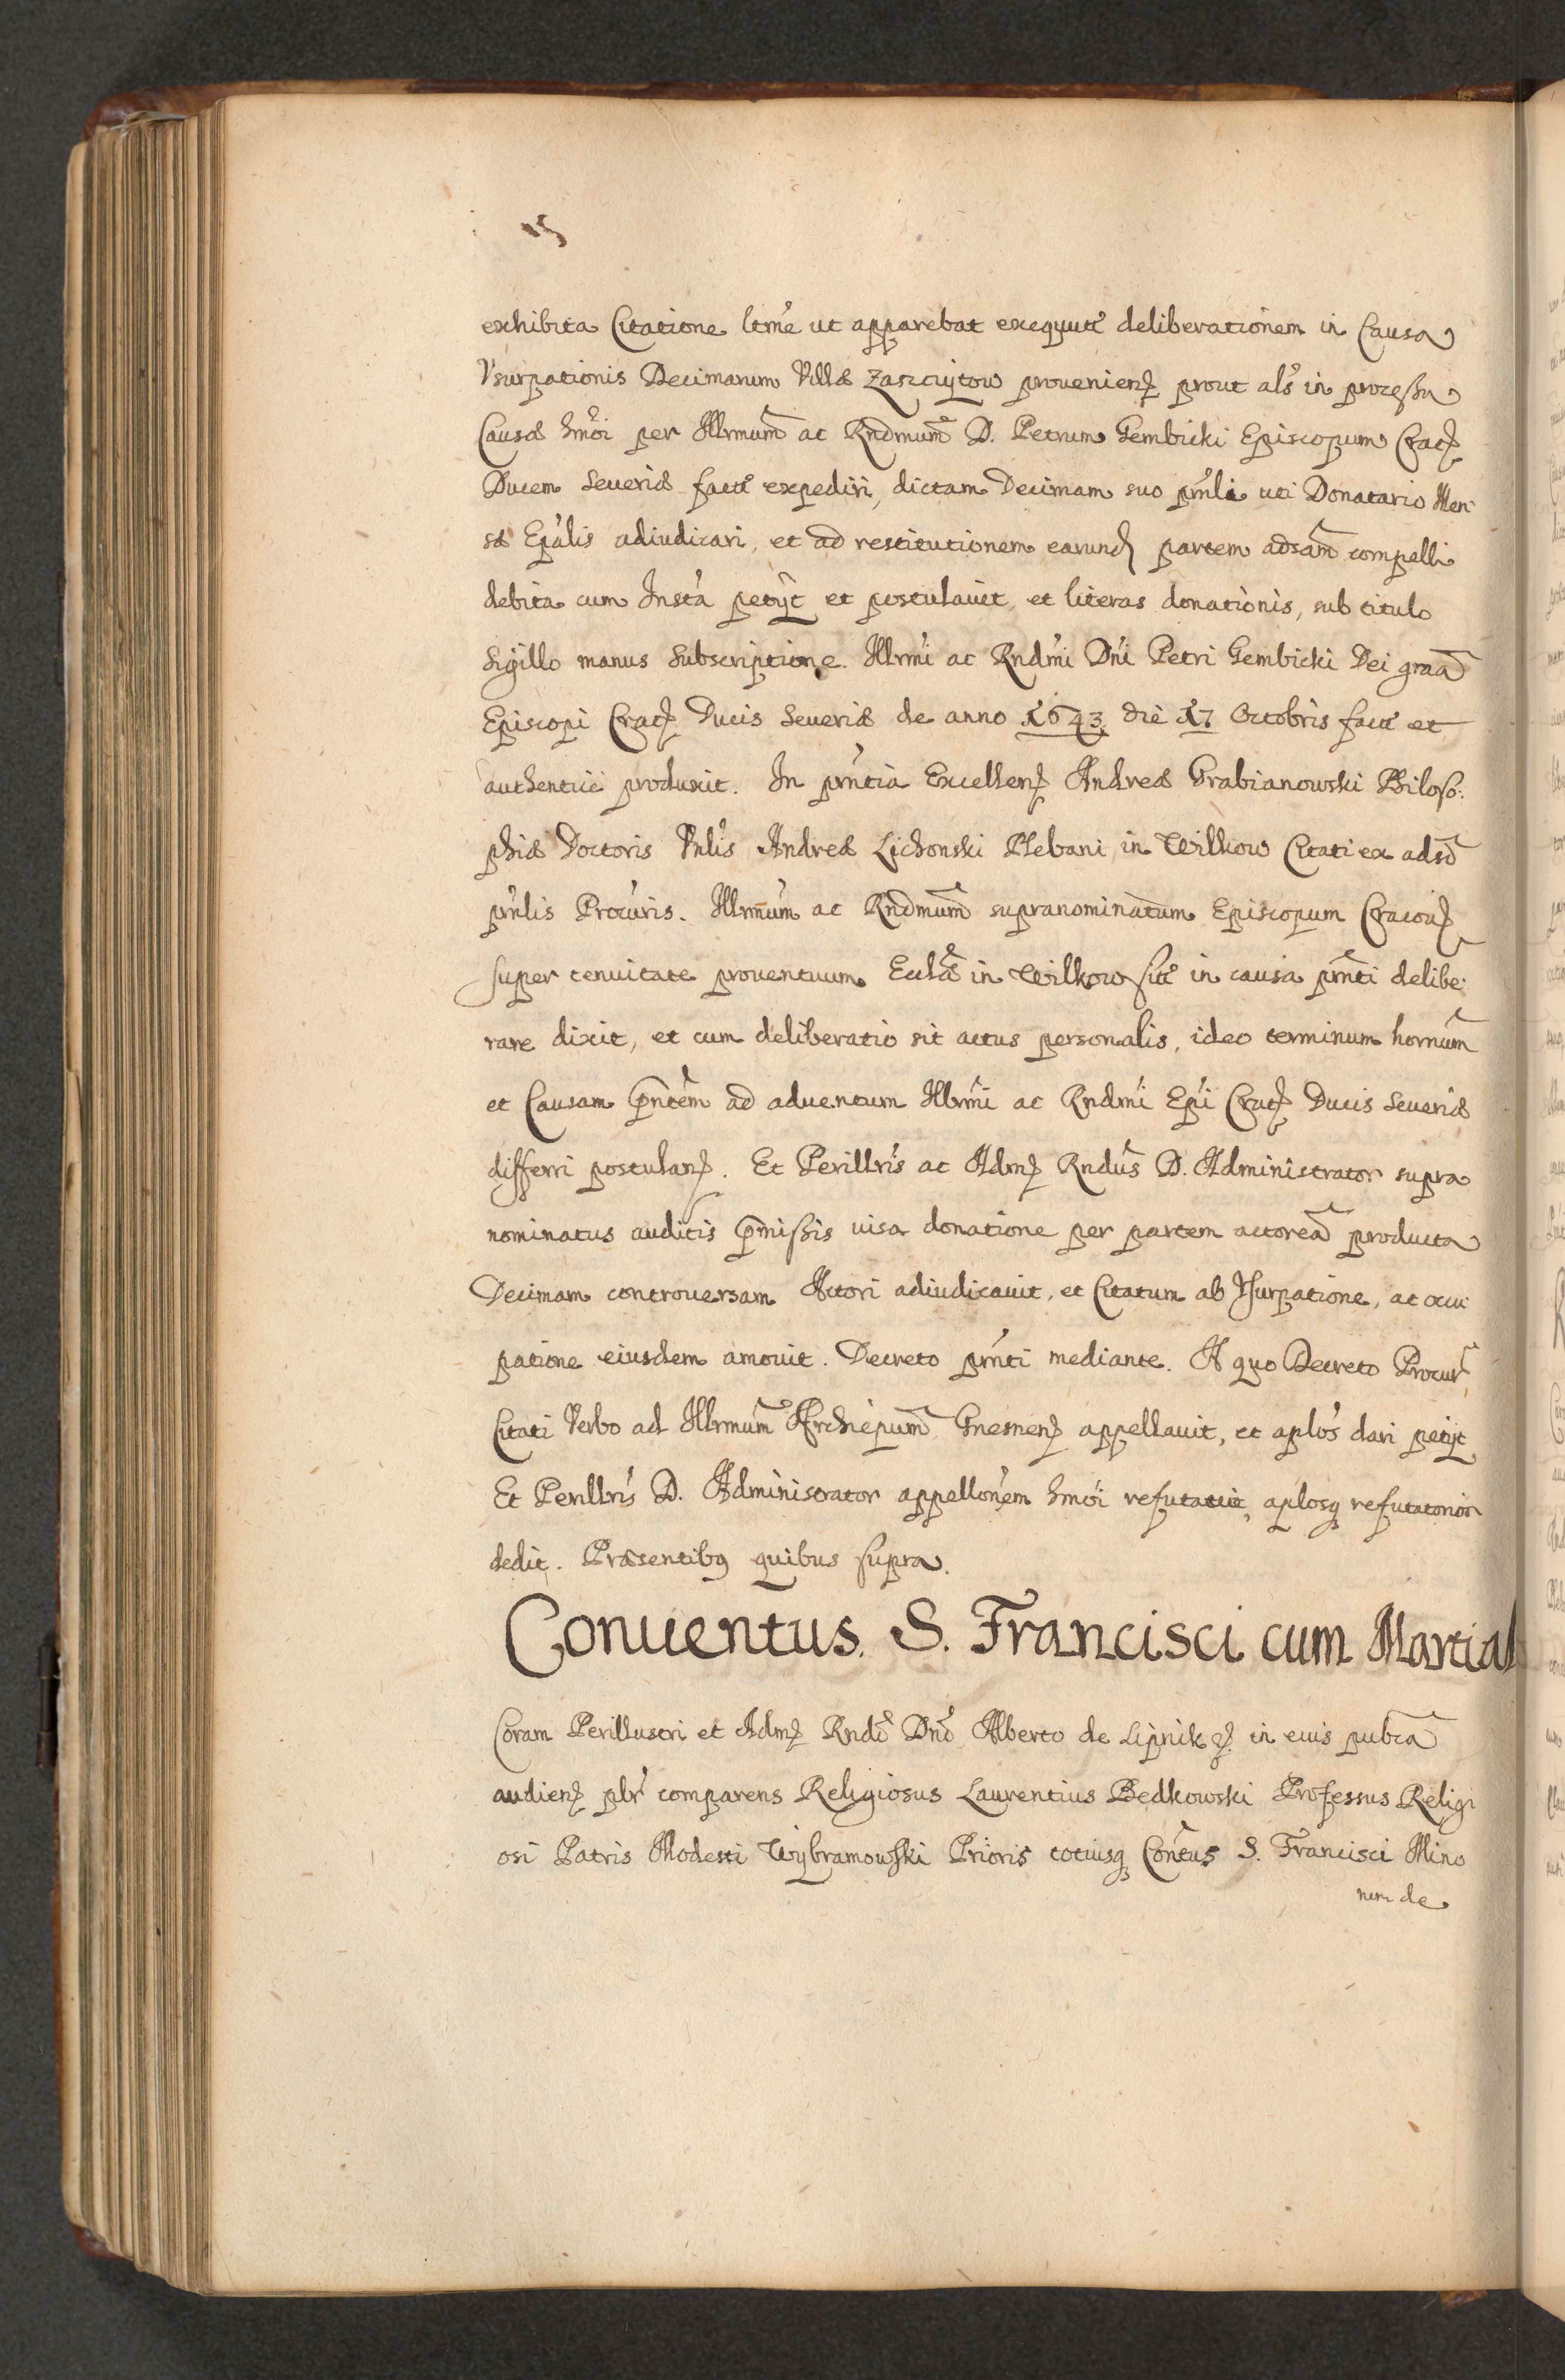 exhibita Citatione ltmé ut apparebat exequutẽ deliberationem in Causa
Vsurpationis Decimarum Villæ Zaszczytow prouenienꝭ prout als̃ in processu
Causæ hm̃oi per Illrmum̃ ac Rndmum̃ D. Petrum Gembicki Episcopum Cracꝭ
Ducem Seueriæ factẽ expediri, dictam Decimam suo pñli uti Donatario Men
sæ Epãlis adiudicari, et ad restitutionem earundꝭ partem adsam̃ compelli
debita cum Instã petÿt et postulauit, et literas donationis, sub titulo
Sigillo manus Subscriptione. Illrmĩ ac Rndmĩ Dñi Petri Gembicki Dei graã
Episcopi Cracꝭ Ducis Seueriæ de anno 1643 die 17 Octobris factẽ et
authenticè produxit. In prñtia Excellenꝭ Andreæ Grabianowski Philoso:
phiæ Doctoris Vnlis̃ Andreæ Lichonski Plebani in Wilkow Citati ex adsõ
prñlis Procũris. Illrmum̃ ac Rndmum̃ supranominatum Episcopum Cracouꝭ
super tenuitate prouentuum Ecclæ̃ in Wilkow sitẽ in causa prñti delibe:
rare dixit, et cum deliberatio sit actus personalis, ideo terminum hornum̃
et Causam p̃ntem̃ ad aduentum Illrmĩ ac Rndmĩ Epĩ Cracꝭ Ducis Seueriæ
differri postulanꝭ. Et Perillris̃ ac Admꝭ Rndus̃ D. Administrator supra
nominatus auditis p̃missis uisa donatione per partem actoream̃ producta
Decimam controuersam Actori adiudicauit, et Citatum ab Vsurpatione, ac occu
patione eiusdem amouit. Decreto prñti mediante. A quo Decreto Procur̃
Citati Verbo ad Illrmum̃ Archiepum̃ Gnesnenꝭ appellauit, et aplos̃ dari petÿt
Et Perillris̃ D. Administrator appellonem̃ hmõi refutauit, aplosq refutatorios
dedit. Præsentibꝯ quibus supra.
Conuentus. S. Francisci cum Martial
Coram Perillustri et Admꝭ Rndõ Dnõ Alberto de Lipnik ꝛ. in euis pubcã
audienꝭ plr̃ comparens Religiosus Laurentius Bedkowski Professus Religi
osi Patris Modesti Wÿbramowski Prioris totiusq Coñtus S. Francisci Mino
rum de